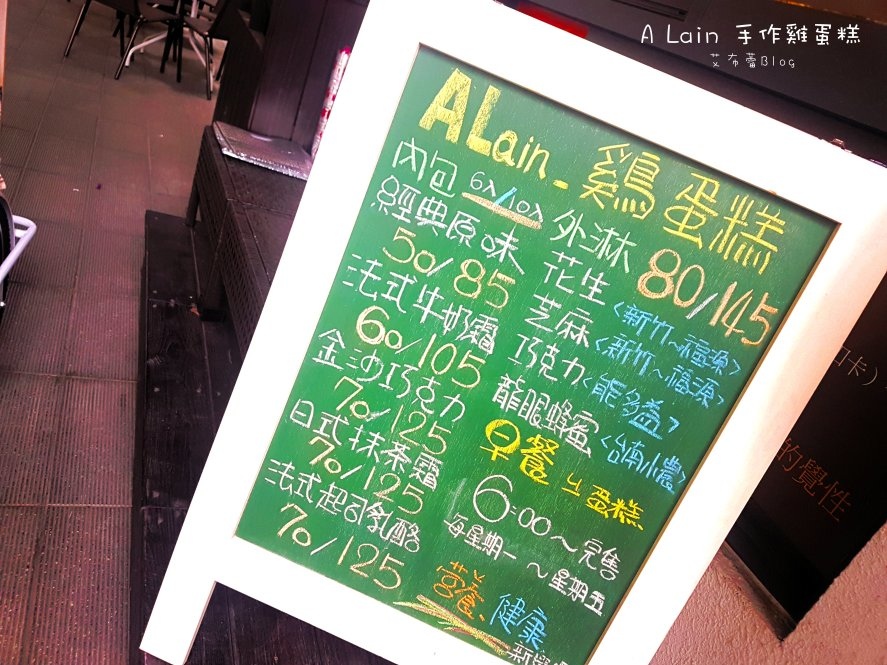 A Lain 手作雞蛋糕
艾布蕾Blog
ALain - 鷄蛋糕
內包 6入/10入
經典原味
50/85
法式牛奶霜
60/105
金沙巧克力
70/125
日式抹茶霜
70/125
法式起司乳酪
70/125
外淋 80/145
花生 <新竹~福源>
芝麻 <新竹~福源>
巧克力 <能多益>
龍眼蜂蜜 <台南小農>
早餐 ㄉ 蛋糕
6:00~完售
每星期一
~星期五
營養、健康
口卡)
的覺性